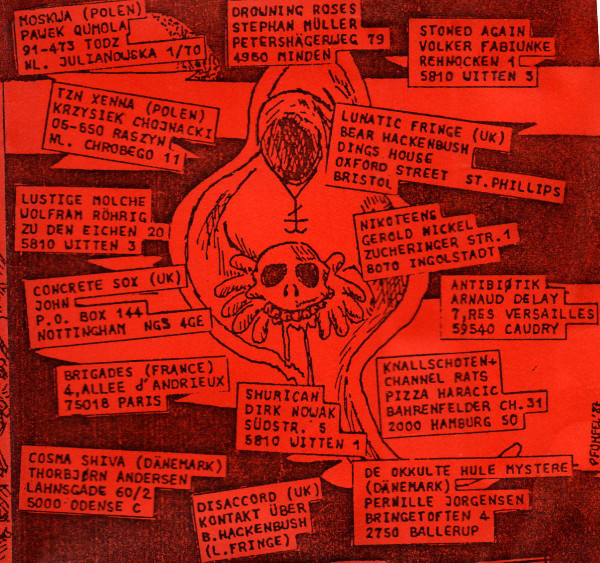 MOSKWA (POLEN)
PAWEK QUMOLA
91-473 TODZ
NL. JULIANOWSKA 1/70
DROWNING ROSES
STEPHAN MÜLLER
PETERSHÄGERWEG 79
4950 MINDEN
STONED AGAIN
VOLKER FABIUNKE
REHNOCKEN 1
5810 WITTEN 3
TZN XENNA (POLEN)
KRZYSIEK CHOJNACKI
05-550 RASZYN
NL. CHROBEGO 11
LUNATIC FRINGE (UK)
BEAR HACKENBUSH
DINGS HOUSE
OXFORD STREET ST. PHILLIPS
BRISTOL
LUSTIGE MOLCHE
WOLFRAM RÖHRIG
ZU DEN EICHEN 20
5810 WITTEN 3
NIKOTEENS
GEROLD NICKEL
ZUCHERINGER STR. 1
8070 INGOLSTADT
CONCRETE SOX (UK)
JOHN
P.O. BOX 144
NOTTINGHAM NG3 4GE
ANTIBIØTIK
ARNAUD DELAY
7, RES VERSAILLES
59540 CAUDRY
BRIGADES (FRANCE)
4, ALLEE d'ANDRIEUX
75018 PARIS
KNALLSCHOTEN+
CHANNEL RATS
PIZZA HARACIC
BAHRENFELDER CH. 31
2000 HAMBURG 50
SHURICAN
DIRK NOWAK
SÜDSTR. 5
5810 WITTEN 1
COSMA SHIVA (DÄNEMARK)
THORBJØRN ANDERSEN
LAHNSGADE 60/2
5000 ODENSE C
DISACCORD (UK)
KONTAKT ÜBER
B. HACKENBUSH
(L. FRINGE)
DE OKKULTE HULE MYSTERE
(DÄNEMARK)
PERNILLE JORGENSEN
BRINGETOFTEN 4
2750 BALLERUP